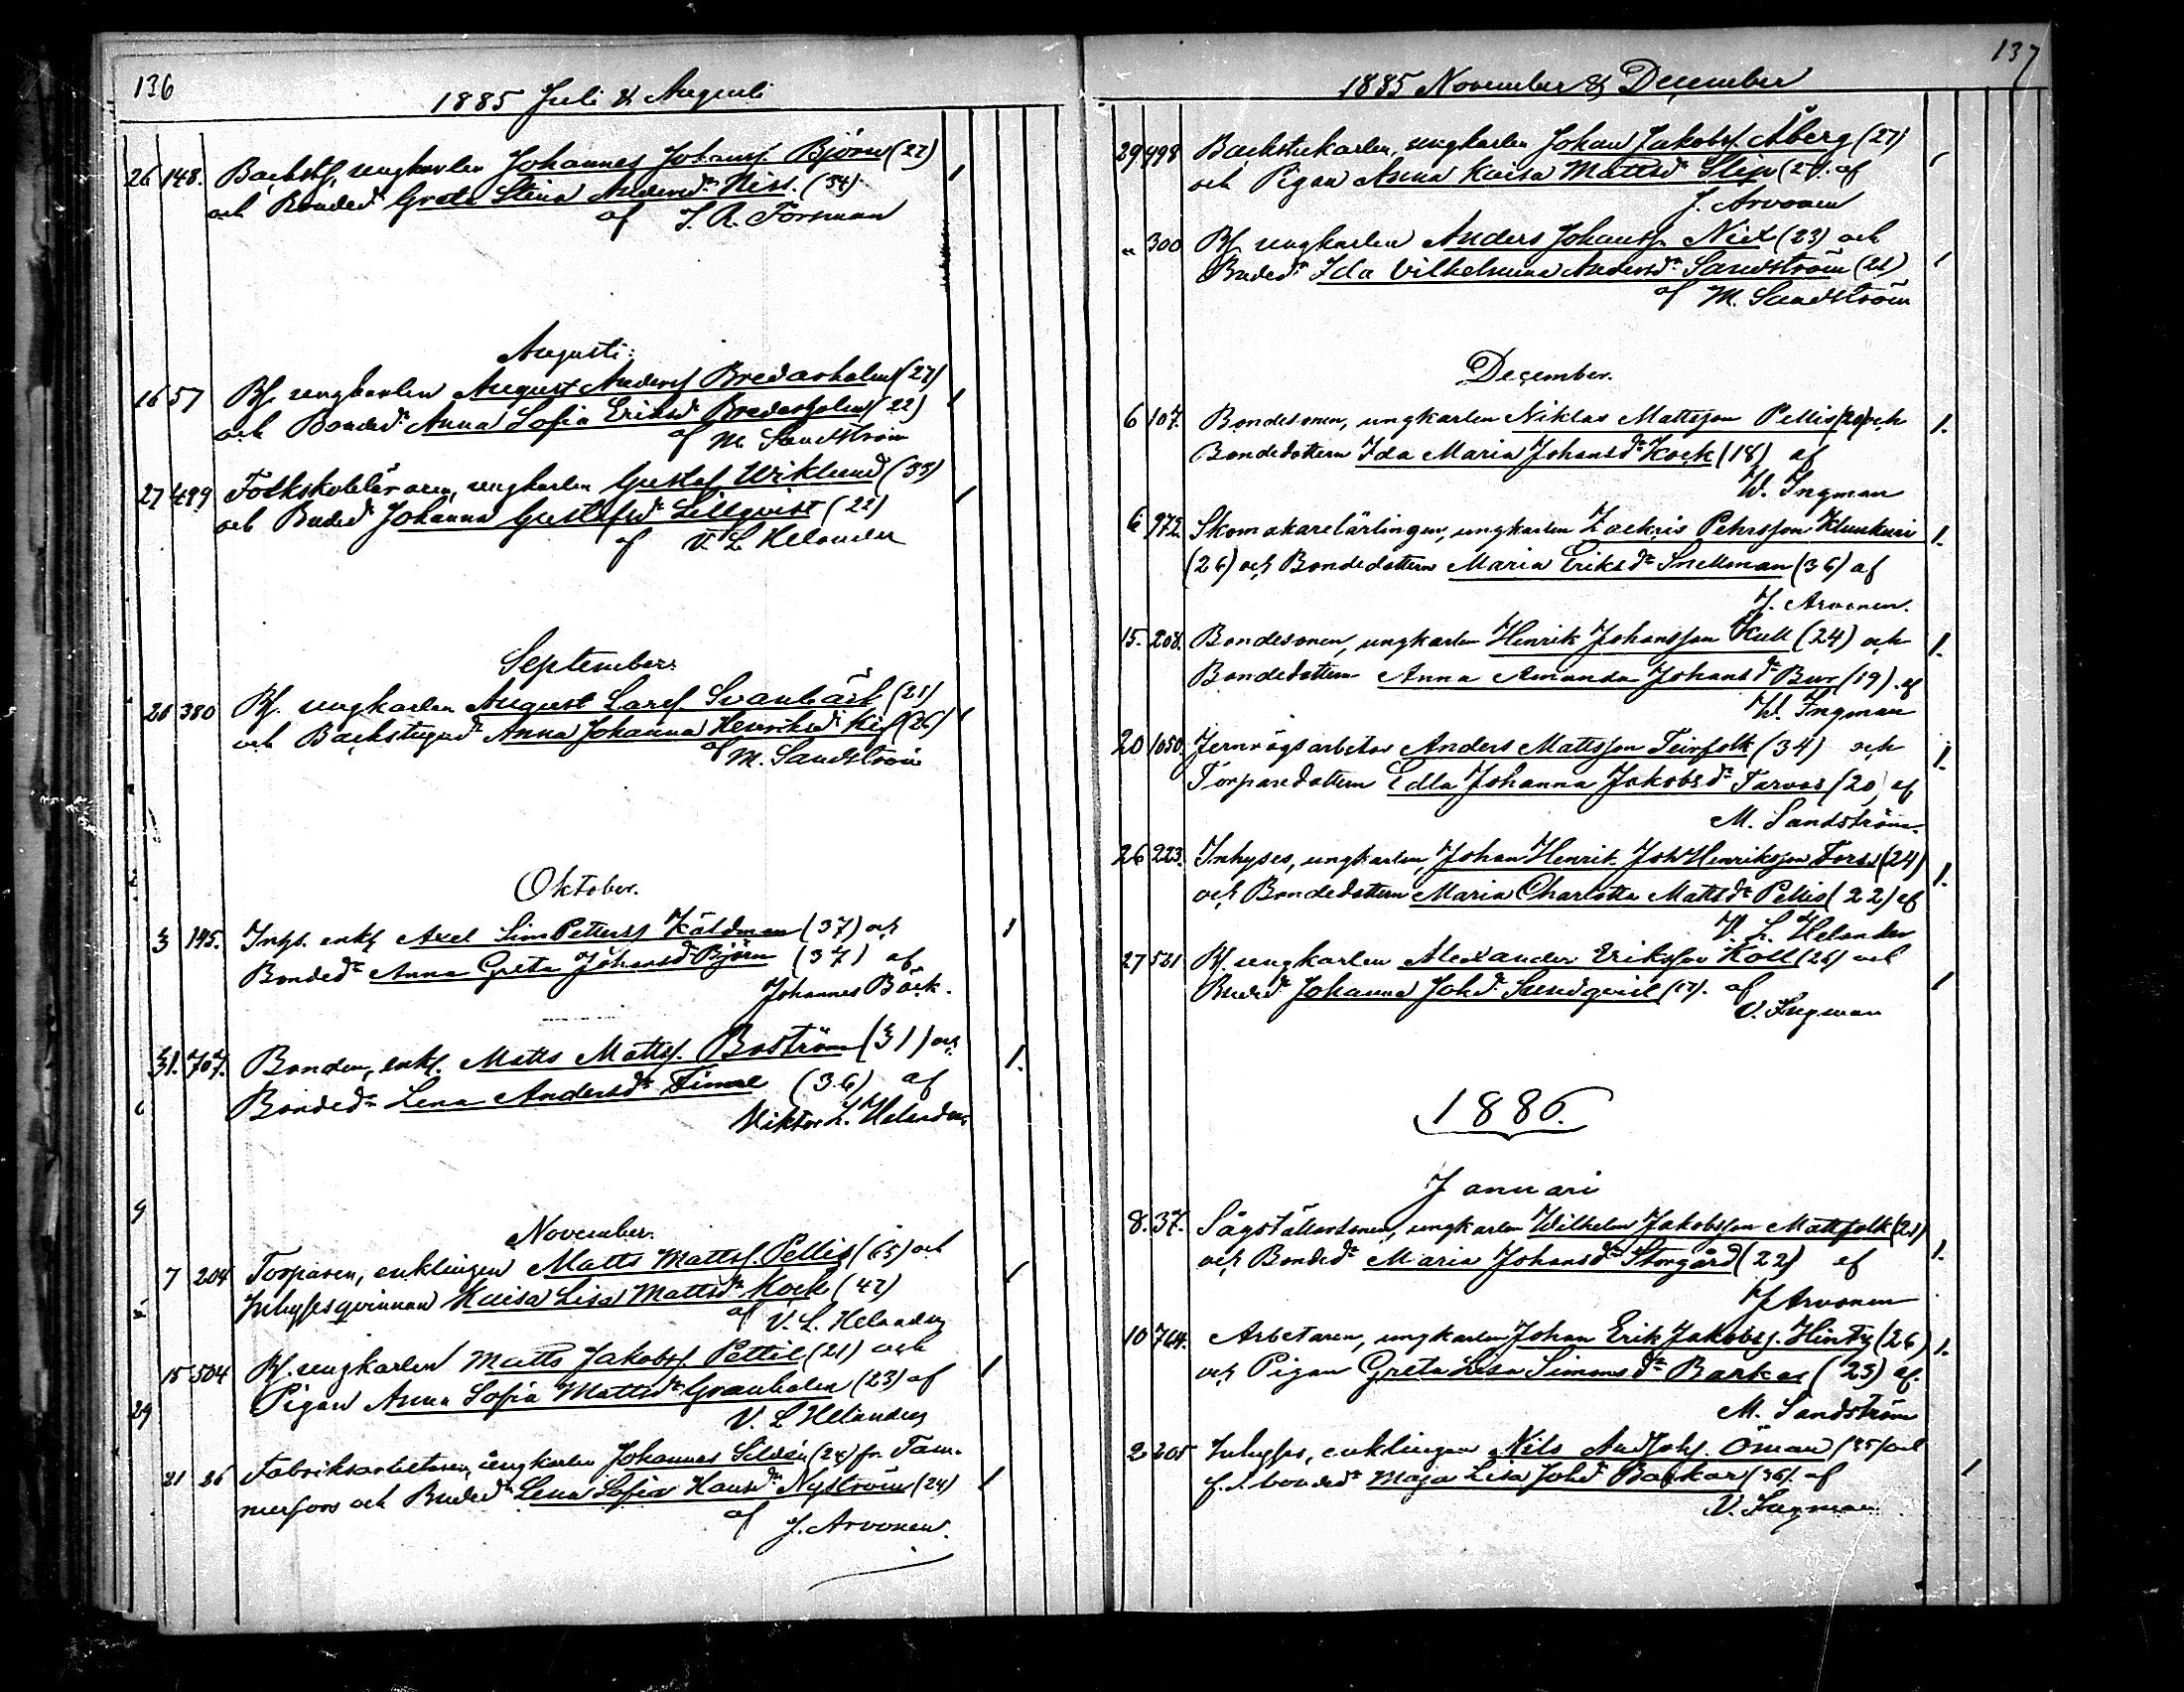 136
1885 Juli & Augusti
26 148. Backstf, ungkarlen Johannes Johansf. Björn (22) 1
och Bonded. Greta Stina Andersdr Niss. (34)
af J. R. Forsman
Augusti:
16 57 Bf. ungkarlen August Andersf Bredarholm (27) 1
och Bonded. Anna Sofia Eriksdr Bredarholm (22)
af M. Sandström
27 499 Folkskoleläraren, ungkarlen Gustaf Wiklund (33) 1
och Bnded. Johanna Gustafsdr Lillqvist (22)
af V. L. Helander
September:
20 380 Bf. ungkarlen August Larsf. Svanbäck (21) 1
och Backstugud. Anna Johanna Henriksdr (26)
af M. Sandström
Oktober.
3 195. Inhs. enkl Axel Sim Pettersf Käldman (37) och 1
Bondedr Anna Greta Johansdr Björn (37) af
Johannes Bäck.
31. 707. Bonden, enkl. Matts Mattsf. Boström (31) och 1.
Bondedr Lena Andersdr (36) af
Viktor L. Helander
November.
7 204 Torparen, enklingen Matts Mattsf. Pellis (65) och 1
Inhysesqvinnan Kaisa Lisa Mattsdr Kock (42)
af V. L. Helander
15 504 Bf. ungkarlen Matts Jakobsf. Pettil (21) och 1
Pigan Anna Sofia Mattsdr Granholm (23) af
V. L. Helander
21 26 Fabriksarbetaren, ungkarlen Johannes Sildén (24) fr. Tam- 1
merfors och Bnded. Lena Sofia Hansdr Nyström (24)
af J. Arvonen.
137
1885 November & December
29 498 Backstukarlen, ungkarlen Johan Jakobsf. Åberg (27) 1
och Pigan Anna Kaisa Mattsdr af
J. Arvonen
" 300 Bf. ungkarlen Anders Johansf. (23) och 1
Bnded. Ida Vilhelmina Andersdr Sandström (21)
af M. Sandström
December.
6 107. Bondesonen, ungkarlen Niklas Mattsson Pellis (20) och 1.
Bondedottern Ida Maria Johansdr Kock (18) af
W. Ingman
6 972. Skomakarelärlingen, ungkarlen Zackris Pehrsson Klunkuri 1.
(26) och Bondedottern Maria Eriksdr Snellman (36) af
J. Arvonen.
15. 208. Bondesonen, ungkarlen Henrik Johansson Kull (24) och 1.
Bondedottern Anna Amanda Johansdr Bur (19). af
W. Ingman
20 1050. Jernvägsarbetar Anders Mattsson Teirfolk (34) och 1.
Torparedottern Edla Johanna Jakobsdr Tarvos (20) af
M. Sandström.
26 223. Inhyses, ungkarlen, Johan Henrik Joh Henriksson Forss (24) 1.
och Bondedottern Maria Charlotta Mattsdr Pellis (22) af
V. L. Helander
27 521 Bf. ungkarlen Alexander Eriksson Koll (26) och 1
Bnded. Johanna Johdr Sundqvist af
V. Ingman
1886.
Januari
8. 37. Sågställaresonen, ungkarlen Wilhelm Jakobsson Mattsfolk (21) 1.
och Bondedr Maria Johansdr Storgård (22) af
J Arvonen
10 764. Arbetaren, ungkarlen Johan Erik Jakobsf. (26) 1.
och Pigan Greta Lisa Simonsdr Barkar (23) af
M. Sandström
2 205 Inhyses, enklingen Nils And Johf. Öman (35) och 1
f. d. bonded. Maja Lisa Johdr Backar (36). af
V. Ingman